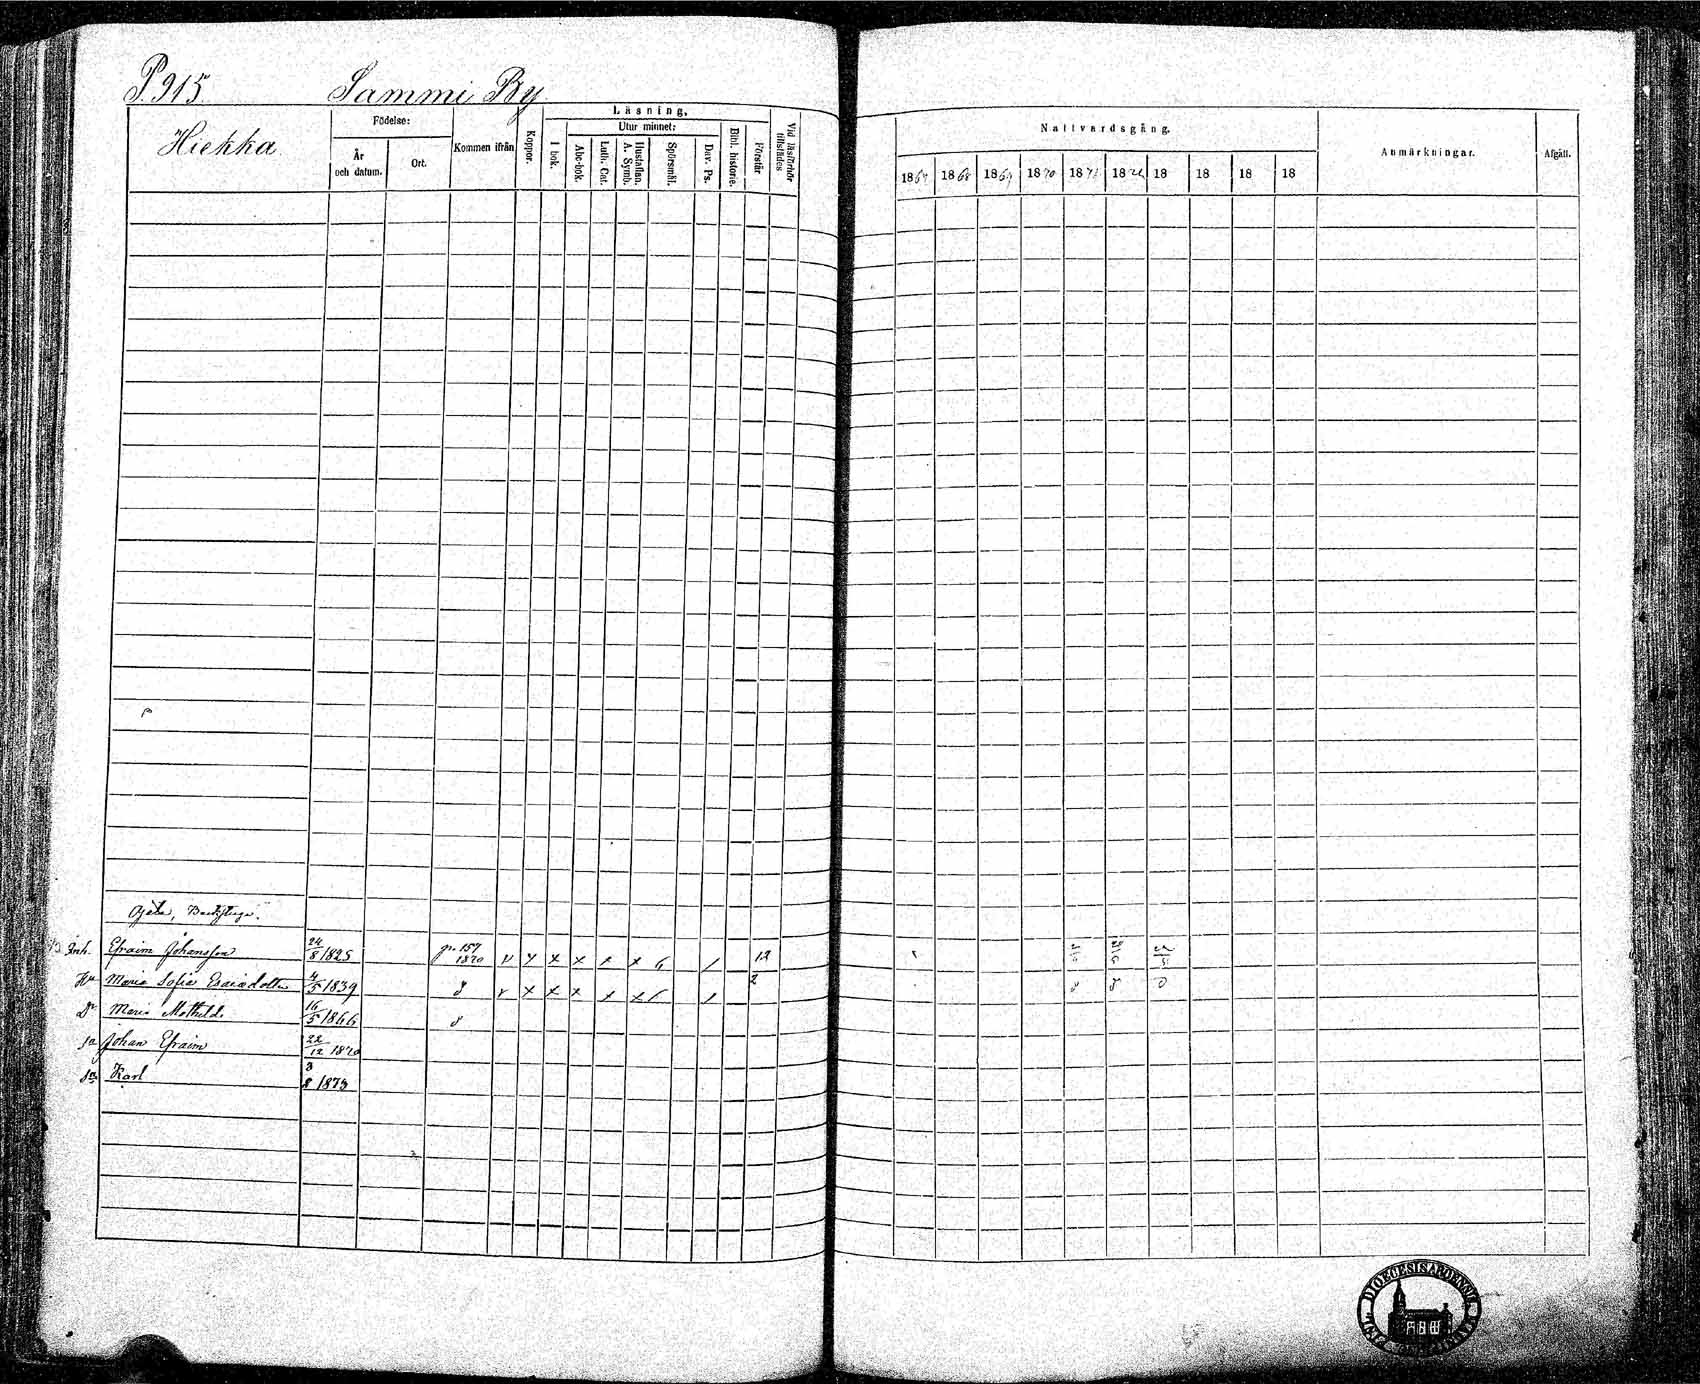 P. 915
Sammi By
Hiekka
Födelse:
År
och datum.
Ort.
Kommen ifrån
Koppor.
Läsning,
I bok.
Utur minnet:
Abc-bok.
Luth. Cat.
Hustaflan.
A. Symb.
Spörsmål.
Dav. Ps.
Bibl. historie.
Förstår
Vid läsförhör
tillstädes
Nattvardsgång.
1867 1868 1869 1870 1871 1872 18 18 18 18
Anmärkningar.
Afgått.
Inh. Efraim Johansson 24/8 1825 p. 157 1870 12
Hu Maria Sofia Esaiadotter 4/5 1839 2
Dr Maria Mathilda 16/5 1866
So Johan Efraim 22/12 1870
So Karl 3/8 1873
DIOECESIS ABOENSIS